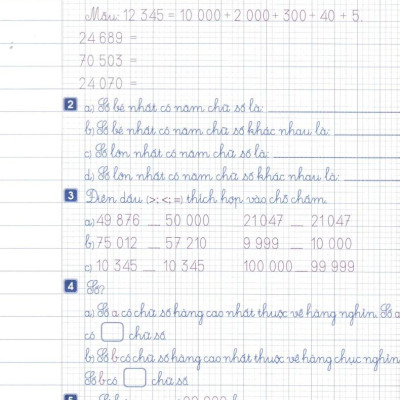 Mẫu: 12 345 = 10 000 + 2 000 + 300 + 40 + 5.
24 689 =
70 503 =
24 070 =
2 a) Số bé nhất có năm chữ số là:
b) Số bé nhất có năm chữ số khác nhau là:
c) Số lớn nhất có năm chữ số là:
d) Số lớn nhất có năm chữ số khác nhau là:
3 Điền dấu (>; <; =) thích hợp vào chỗ chấm.
a) 49 876 __ 50 000 21 047 __ 21 047
b) 75 012 __ 57 210 9 999 __ 10 000
c) 10 345 __ 10 345 100 000 __ 99 999
4 Số?
a) Số a có chữ số hàng cao nhất thuộc về hàng nghìn. Số a
có chữ số
b) Số b có chữ số hàng cao nhất thuộc về hàng chục nghìn.
Số b có chữ số
5